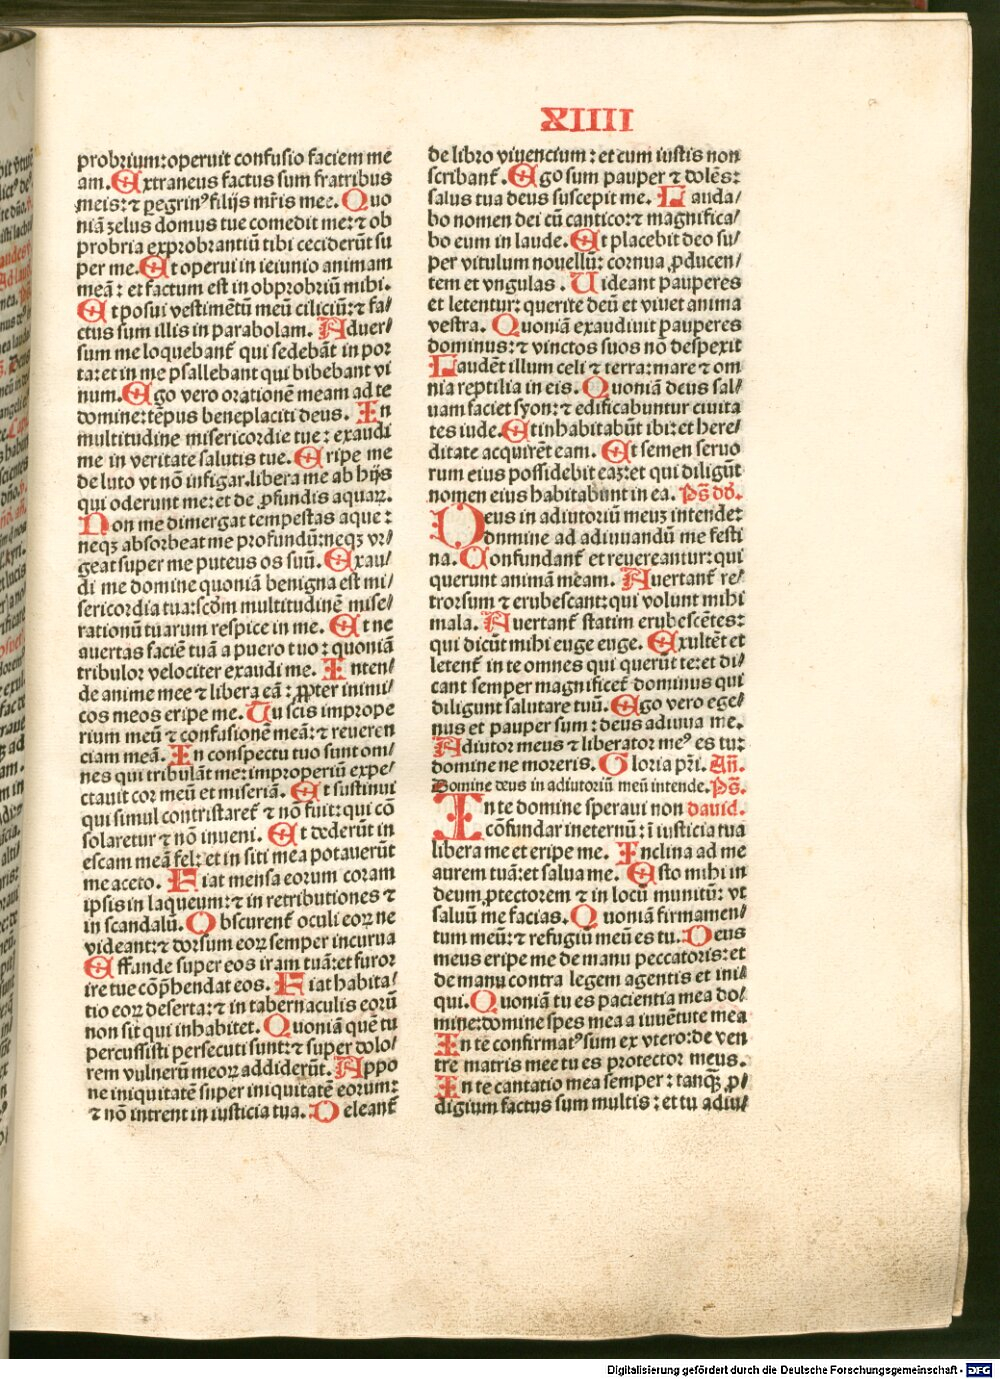 XIIII
probrium: operuit confusio faciem me
am. Extraneus factus sum fratribus
meis: ⁊ ꝑegrin⁹ filijs mr̄is mee. Quo
niā zelus domus tue comedit me: ⁊ ob
probria exprobrantiū tibi ceciderūt su
per me. Et operui in ieiunio animam
meā: et factum est in obprobriū mihi.
Et posui vestimētū meū ciliciū: ⁊ fa⸗
ctus sum illis in parabolam. Aduer⸗
sum me loquebant᷑ qui sedebāt in por
ta: et in me psallebant qui bibebant vi
num. Ego vero orationē meam ad te
domine: tēpus beneplaciti deus. In
multitudine misericordie tue: exaudi
me in veritate salutis tue. Eripe me
de luto vt nō infigar. libera me ab hijs
qui oderunt me: et de ꝓfundis aquaꝝ.
Non me dimergat tempestas aque:
neqꝫ absorbeat me profundū: neqꝫ vr⸗
geat super me puteus os suū. Exau⸗
di me domine quoniā benigna est mi⸗
sericordia tua: scd̄m multitudinē mise⸗
rationū tuarum respice in me. Et ne
auertas faciē tuā a puero tuo: quoniā
tribulor velociter exaudi me. Inten⸗
de anime mee ⁊ libera eā: ꝓpter inimi⸗
cos meos eripe me. Tu scis imprope
rium meū ⁊ confusionē meā: ⁊ reueren
ciam meā. In conspectu tuo sunt om⸗
nes qui tribulāt me: improperiū expe⸗
ctauit cor meū et miseriā. Et sustinui
qui simul contristaret᷑ ⁊ nō fuit: qui cō
solaretur ⁊ nō inueni. Et dederūt in
escam meā fel: et in siti mea potauerūt
me aceto. Fiat mensa eorum coram
ipsis in laqueum: ⁊ in retributiones ⁊
in scandalū. Obscurent᷑ oculi eoꝝ ne
videant: ⁊ dorsum eoꝝ semper incurua
Effunde super eos iram tuā: et furor
ire tue cōp̄hendat eos. Fiat habita⸗
tio eoꝝ deserta: ⁊ in tabernaculis eorū
non sit qui inhabitet. Quoniā quē tu
percussisti persecuti sunt: ⁊ super dolo⸗
rem vulnerū meoꝝ addiderūt. Appo
ne iniquitatē super iniquitatē eorum:
⁊ nō intrent in iusticia tua. Deleant᷑
de libro viuencium: et cum iustis non
scribant᷑. Ego sum pauper ⁊ dolēs:
salus tua deus suscepit me. Lauda⸗
bo nomen dei cū cantico: ⁊ magnifica⸗
bo eum in laude. Et placebit deo su⸗
per vitulum nouellū: cornua ꝓducen⸗
tem et vngulas. Uideant pauperes
et letentur: querite deū et viuet anima
vestra. Quoniā exaudiuit pauperes
dominus: ⁊ vinctos suos nō despexit
Laudēt illum celi ⁊ terra: mare ⁊ om
nia reptilia in eis. Quoniā deus sal⸗
uam faciet syon: ⁊ edificabuntur ciuita
tes iude. Et inhabitabūt ibi: et here⸗
ditate acquirēt eam. Et semen seruo
rum eius possidebit eaꝫ: et qui diligūt
nomen eius habitabunt in ea. Ps̄ dd̄.
Deus in adiutoriū meuꝫ intende:
domine ad adiuuandū me festi
na. Confundant᷑ et reuereantur: qui
querunt animā meam. Auertant᷑ re⸗
trorsum ⁊ erubescant: qui volunt mihi
mala. Auertant᷑ statim erubescētes:
qui dicūt mihi euge euge. Exultēt et
letent᷑ in te omnes qui querūt te: et di
cant semper magnificet᷑ dominus qui
diligunt salutare tuū. Ego vero ege⸗
nus et pauper sum: deus adiuua me.
Adiutor meus ⁊ liberator me⁹ es tu:
domine ne moreris. Gloria pr̄i. Añ.
Domine deus in adiutoriū meū intende. Ps̄.
In te domine speraui non dauid.
cōfundar ineternū: ī iusticia tua
libera me et eripe me. Inclina ad me
aurem tuā: et salua me. Esto mihi in
deum ꝓtectorem ⁊ in locū munitū: vt
saluū me facias. Quoniā firmamen⸗
tum meū: ⁊ refugiū meū es tu. Deus
meus eripe me de manu peccatoris: et
de manu contra legem agentis et ini⸗
qui. Quoniā tu es pacientia mea do⸗
mine: domine spes mea a iuuētute mea
In te confirmat⁹ sum ex vtero: de ven
tre matris mee tu es protector meus.
In te cantatio mea semper: tanqꝫ̄ ꝓ⸗
digium factus sum multis: et tu adiu⸗
Digitalisierung gefördert durch die Deutsche Forschungsgemeinschaft - DFG